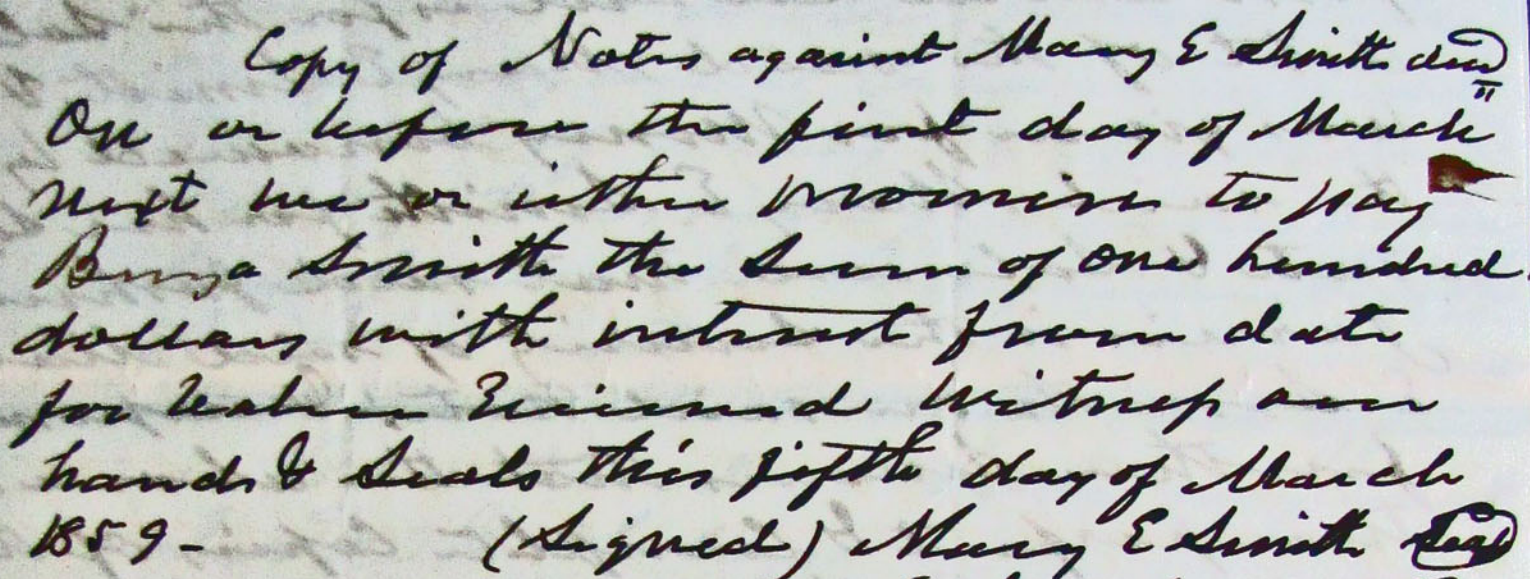 Copy of Notes against Mary E Smith decd
On or before the first day of March
next we or either promise to pay
Benja Smith the Sum of one hundred
dollars with interest from date
for Value Received Witness our
hands & Seals this fifth day of March
1859- (Signed) Mary E Smith Seal